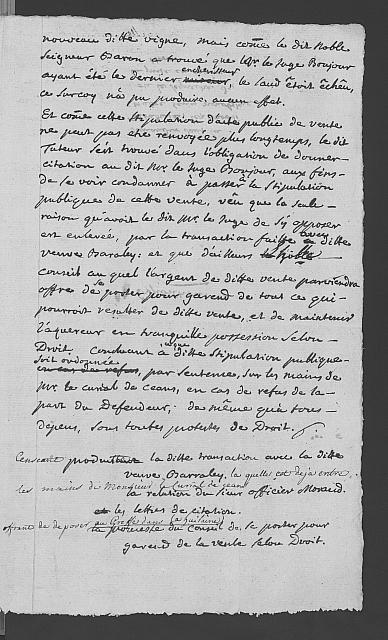 nouveau ditte vigne, mais come le dit Noble
Seigneur Baron a trouvé que Mr le Juge Bonjour
ayant été le dernier encherisseur, le laud étoit échëu,
ce surcoy n'a pu produire aucun effet.
Et come cette Stipulation d'acte publice de vente
ne peut pas etre renvoyée plus longtemps, le dit
Tuteur s'est trouvé dans l'obligation de donner
citation au dit Mr le Juge Bonjour, aux fins
de se voir condanner à passer la Stipulation
publique de cette vente, vëu que la seule
raison qu'avoit le dit Mr le Juge de s'y opposer
est enlevée, par la transaction faitte avec ditte
veuve Barraley; et que d'ailleurs le Noble
Conseil auquel l'argent de ditte vente parviendra
offre de se porter pour garend de tout ce qui
pourroit resulter de ditte vente, et de maintenir
l'aquereur en tranquille possession selon
Droit. Concluant a ce que ditte Stipulation publique
soit ordonnée
en cas de refus, par Sentence, sur les mains de
Mr le curial de ceans, en cas de refus de la
part du Defendeur; de même qu'a tous
depens, sous toutes protestes de Droit.
produit la ditte transaction avec la ditte
veuve Barraley, la quelle est deja entre
les mains de Monsieur le Curial de ceans
la relation du Sieur officier Morand.
les lettres de citation.
offrant de deposer au Greffe dans la
la promesse du Conseil de se porter pour
garend de la vente selon Droit.